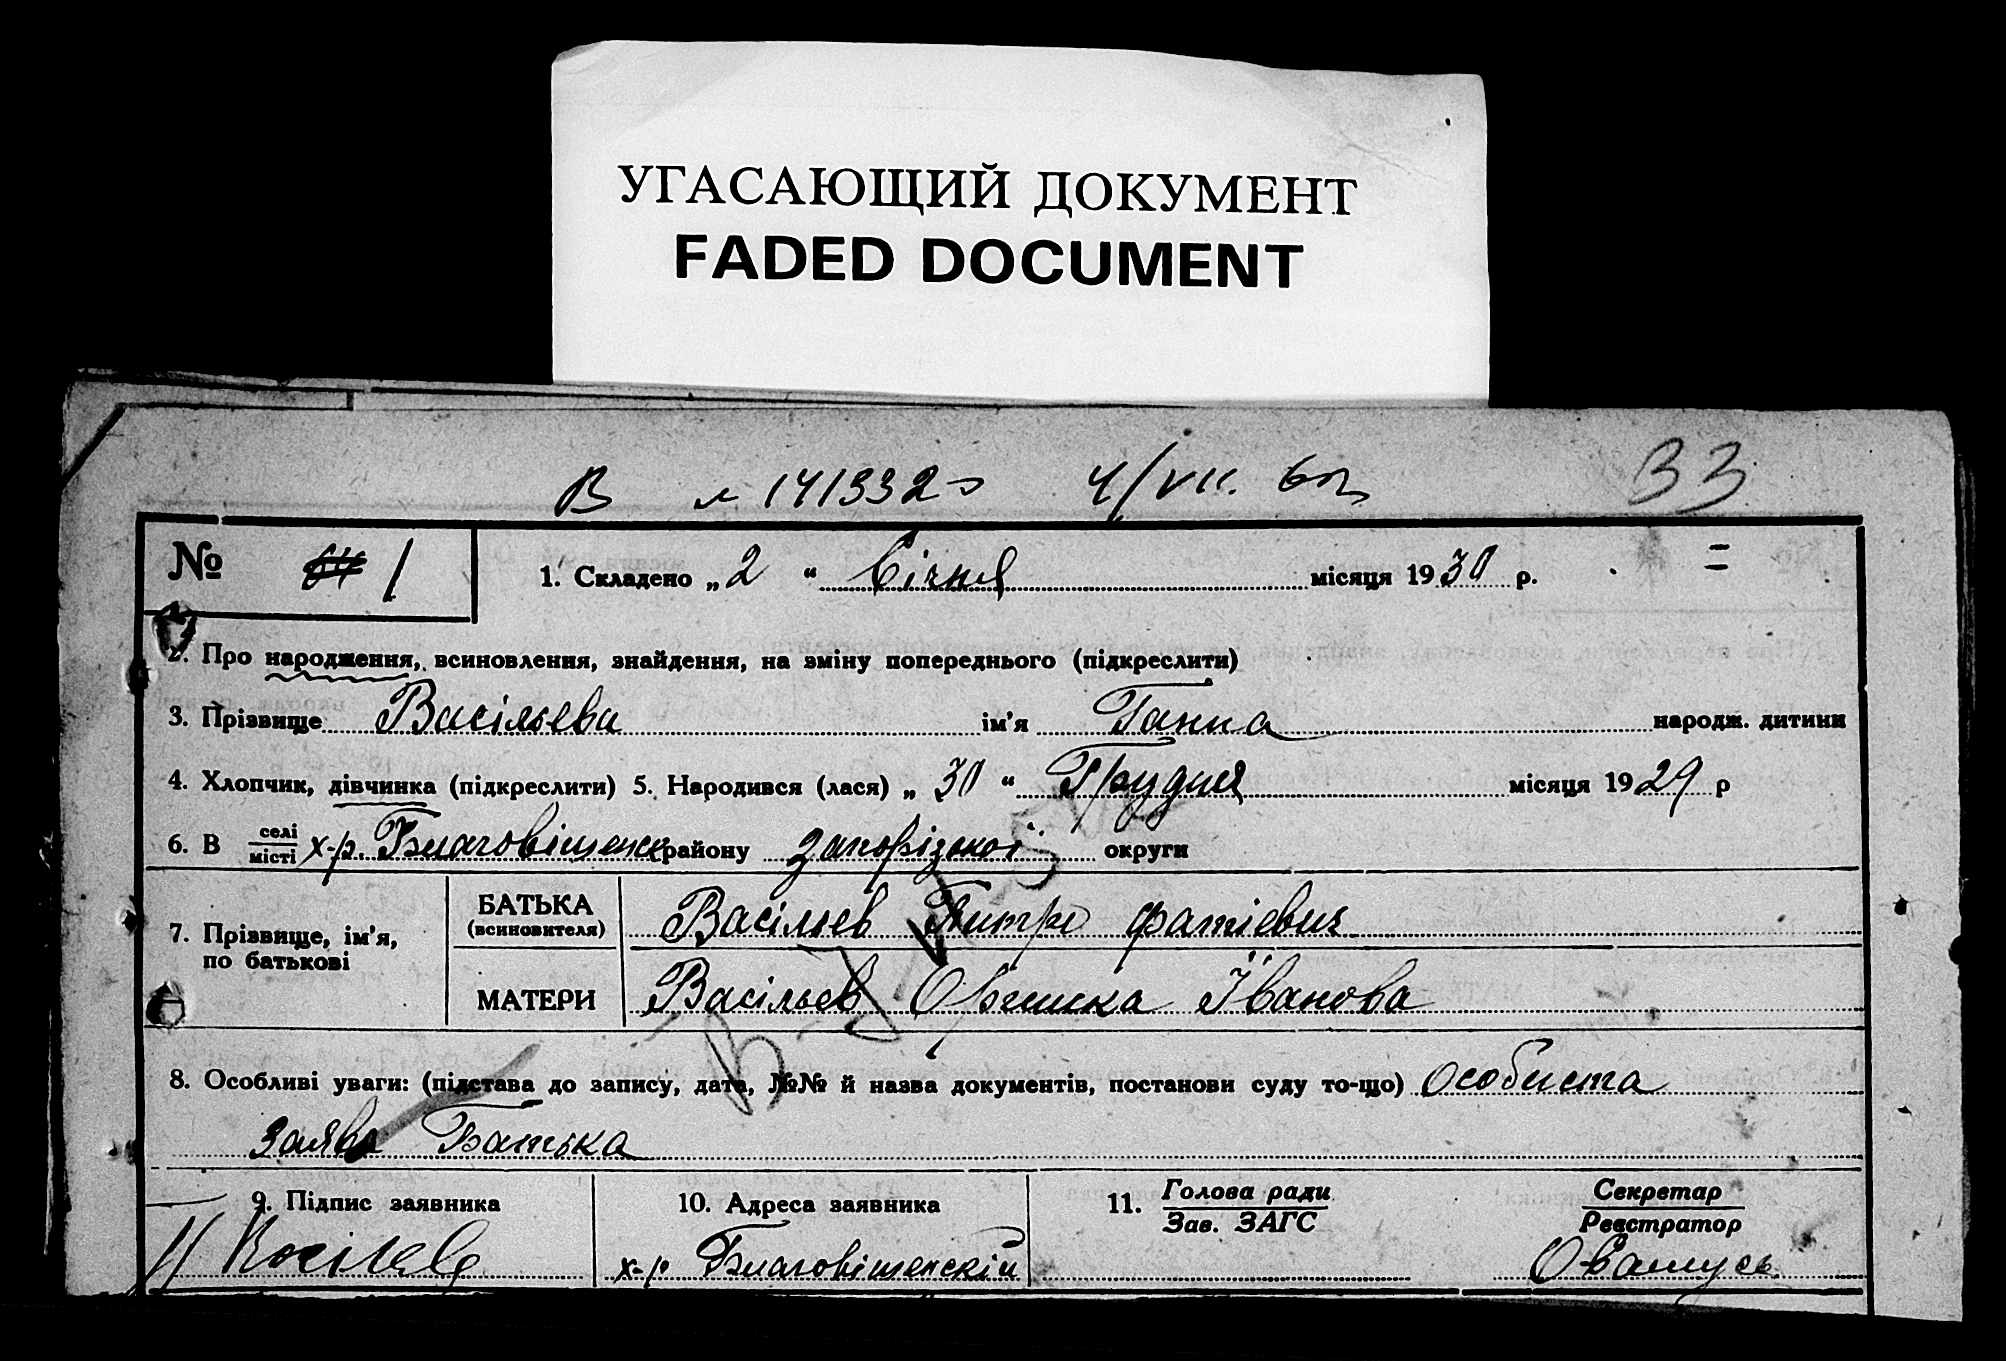 УГАСАЮЩИЙ ДОКУМЕНТ
FADED DOCUMENT
В 141332 4/VII. 33
№ 1 1. Складено „2“ Січня місяця 1930 р.
2. Про народження, всиновлення, знайдення, на зміну попереднього (підкреслити)
3. Прізвище Васільева ім'я Ганна народж. дитини
4. Хлопчик, дівчинка (підкреслити) 5. Народився (лася) „30“ Грудня місяця 1929 р
6. В селі/місті х-р. Благовіщенск району Запорізької округи
7. Прізвище, ім'я, по батькові
БАТЬКА (всиновителя) Васільев Фатієвич
МАТЕРИ Васільев Оришка Іванова
8. Особливі уваги: (підстава до запису, дата, №№ й назва документів, постанови суду то-що) Особиста
заява Батька
9. Підпис заявника 10. Адреса заявника 11. Голова ради/Зав. ЗАГС Секретар/Реєстратор
Васілев х-р Благовіщенскій